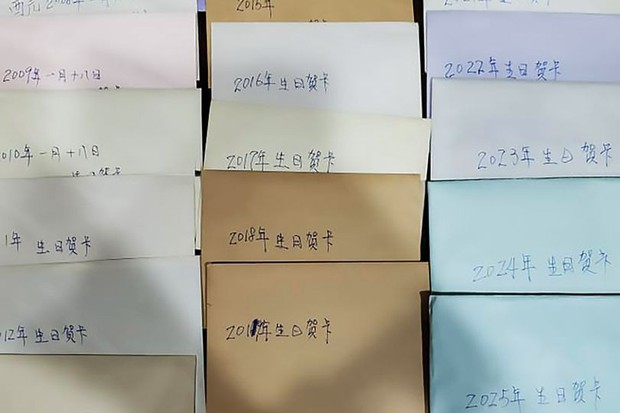 2009年一月十八日
2010年一月十八日
生日賀卡
1年 生日賀卡
2012年 生日賀卡
2015年
2016年 生日賀卡
2017年 生日賀卡
2018年 生日賀卡
年 生日賀卡
2022年 生日賀卡
2023年 生日賀卡
2024年 生日賀卡
2025年 生日賀卡